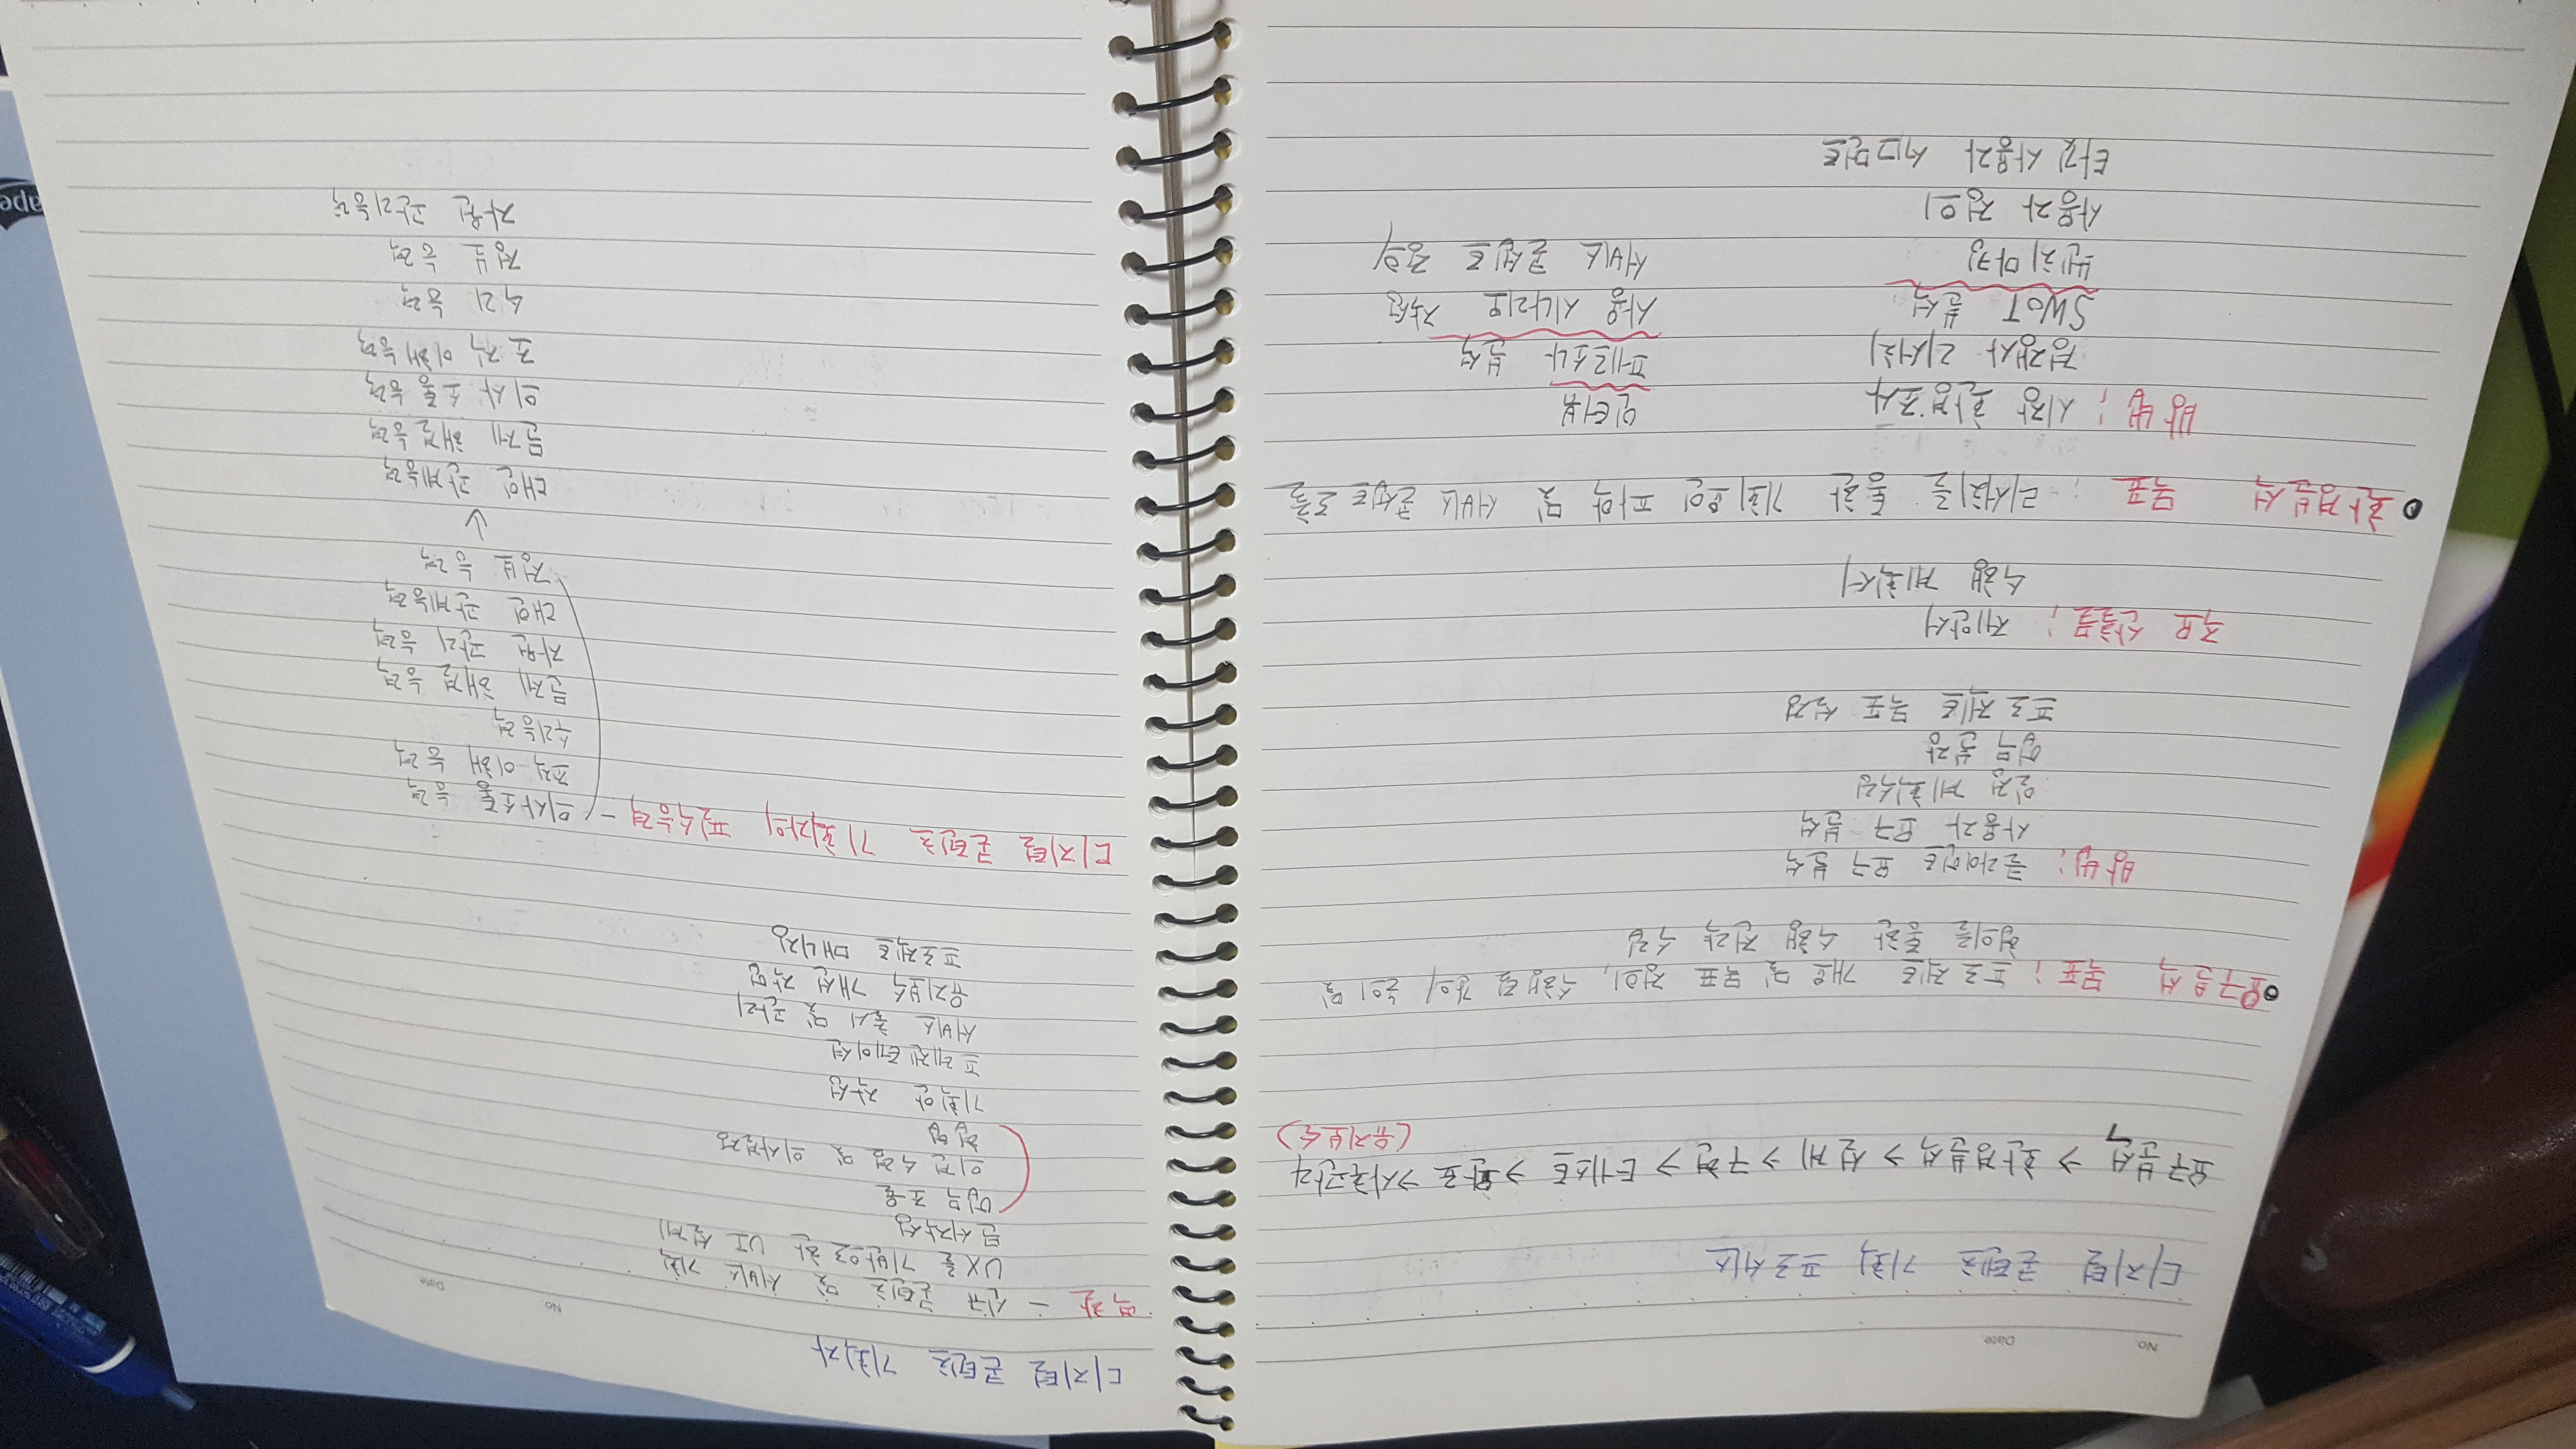 No.
Date.
디지털 콘텐츠 기획 프로세스
요구분석 → 환경분석 → 설계 → 구현 → 테스트 → 완료 → 사후관리
(유지보수)
요구분석 목표; 프로젝트 개요 및 목표 정의, 수행팀 간의 논의 및
협의를 통한 수행 전략 수립
방법; 클라이언트 요구 분석
사용자 요구 분석
일정 계획수립
업무 분장
프로젝트 목표 설정
주요 산출물; 제안서
수행 계획서
환경분석 목표 ; 리서치를 통한 기회요인 파악 및 서비스 콘셉트 도출
방법; 시장 환경조사
경쟁사 리서치
SWOT 분석
벤치마킹
사용자 정의
타깃 사용자 세그먼트
인터뷰
페르소나 분석
사용 시나리오 작성
서비스 콘셉트 정의
디지털 콘텐츠 기획자
No.
Date
역할 - 신규 콘텐츠 및 서비스 기획
UX를 기반으로한 UI 설계
문서작성
업무 조율
의견 수렴 및 의사결정
협업
기획안 작성
프레젠테이션
서비스 출시 및 관리
유지보수 개선 작업
프로젝트 매니징
디지털 콘텐츠 기획자의 필수능력 - 의사소통 능력
조직 이해 능력
수리능력
문제 해결 능력
자원 관리 능력
대인 관계능력
정보 능력
↓
대인 관계능력
문제 해결능력
의사 소통능력
조직 이해능력
수리 능력
정보 능력
자원 관리능력
ape